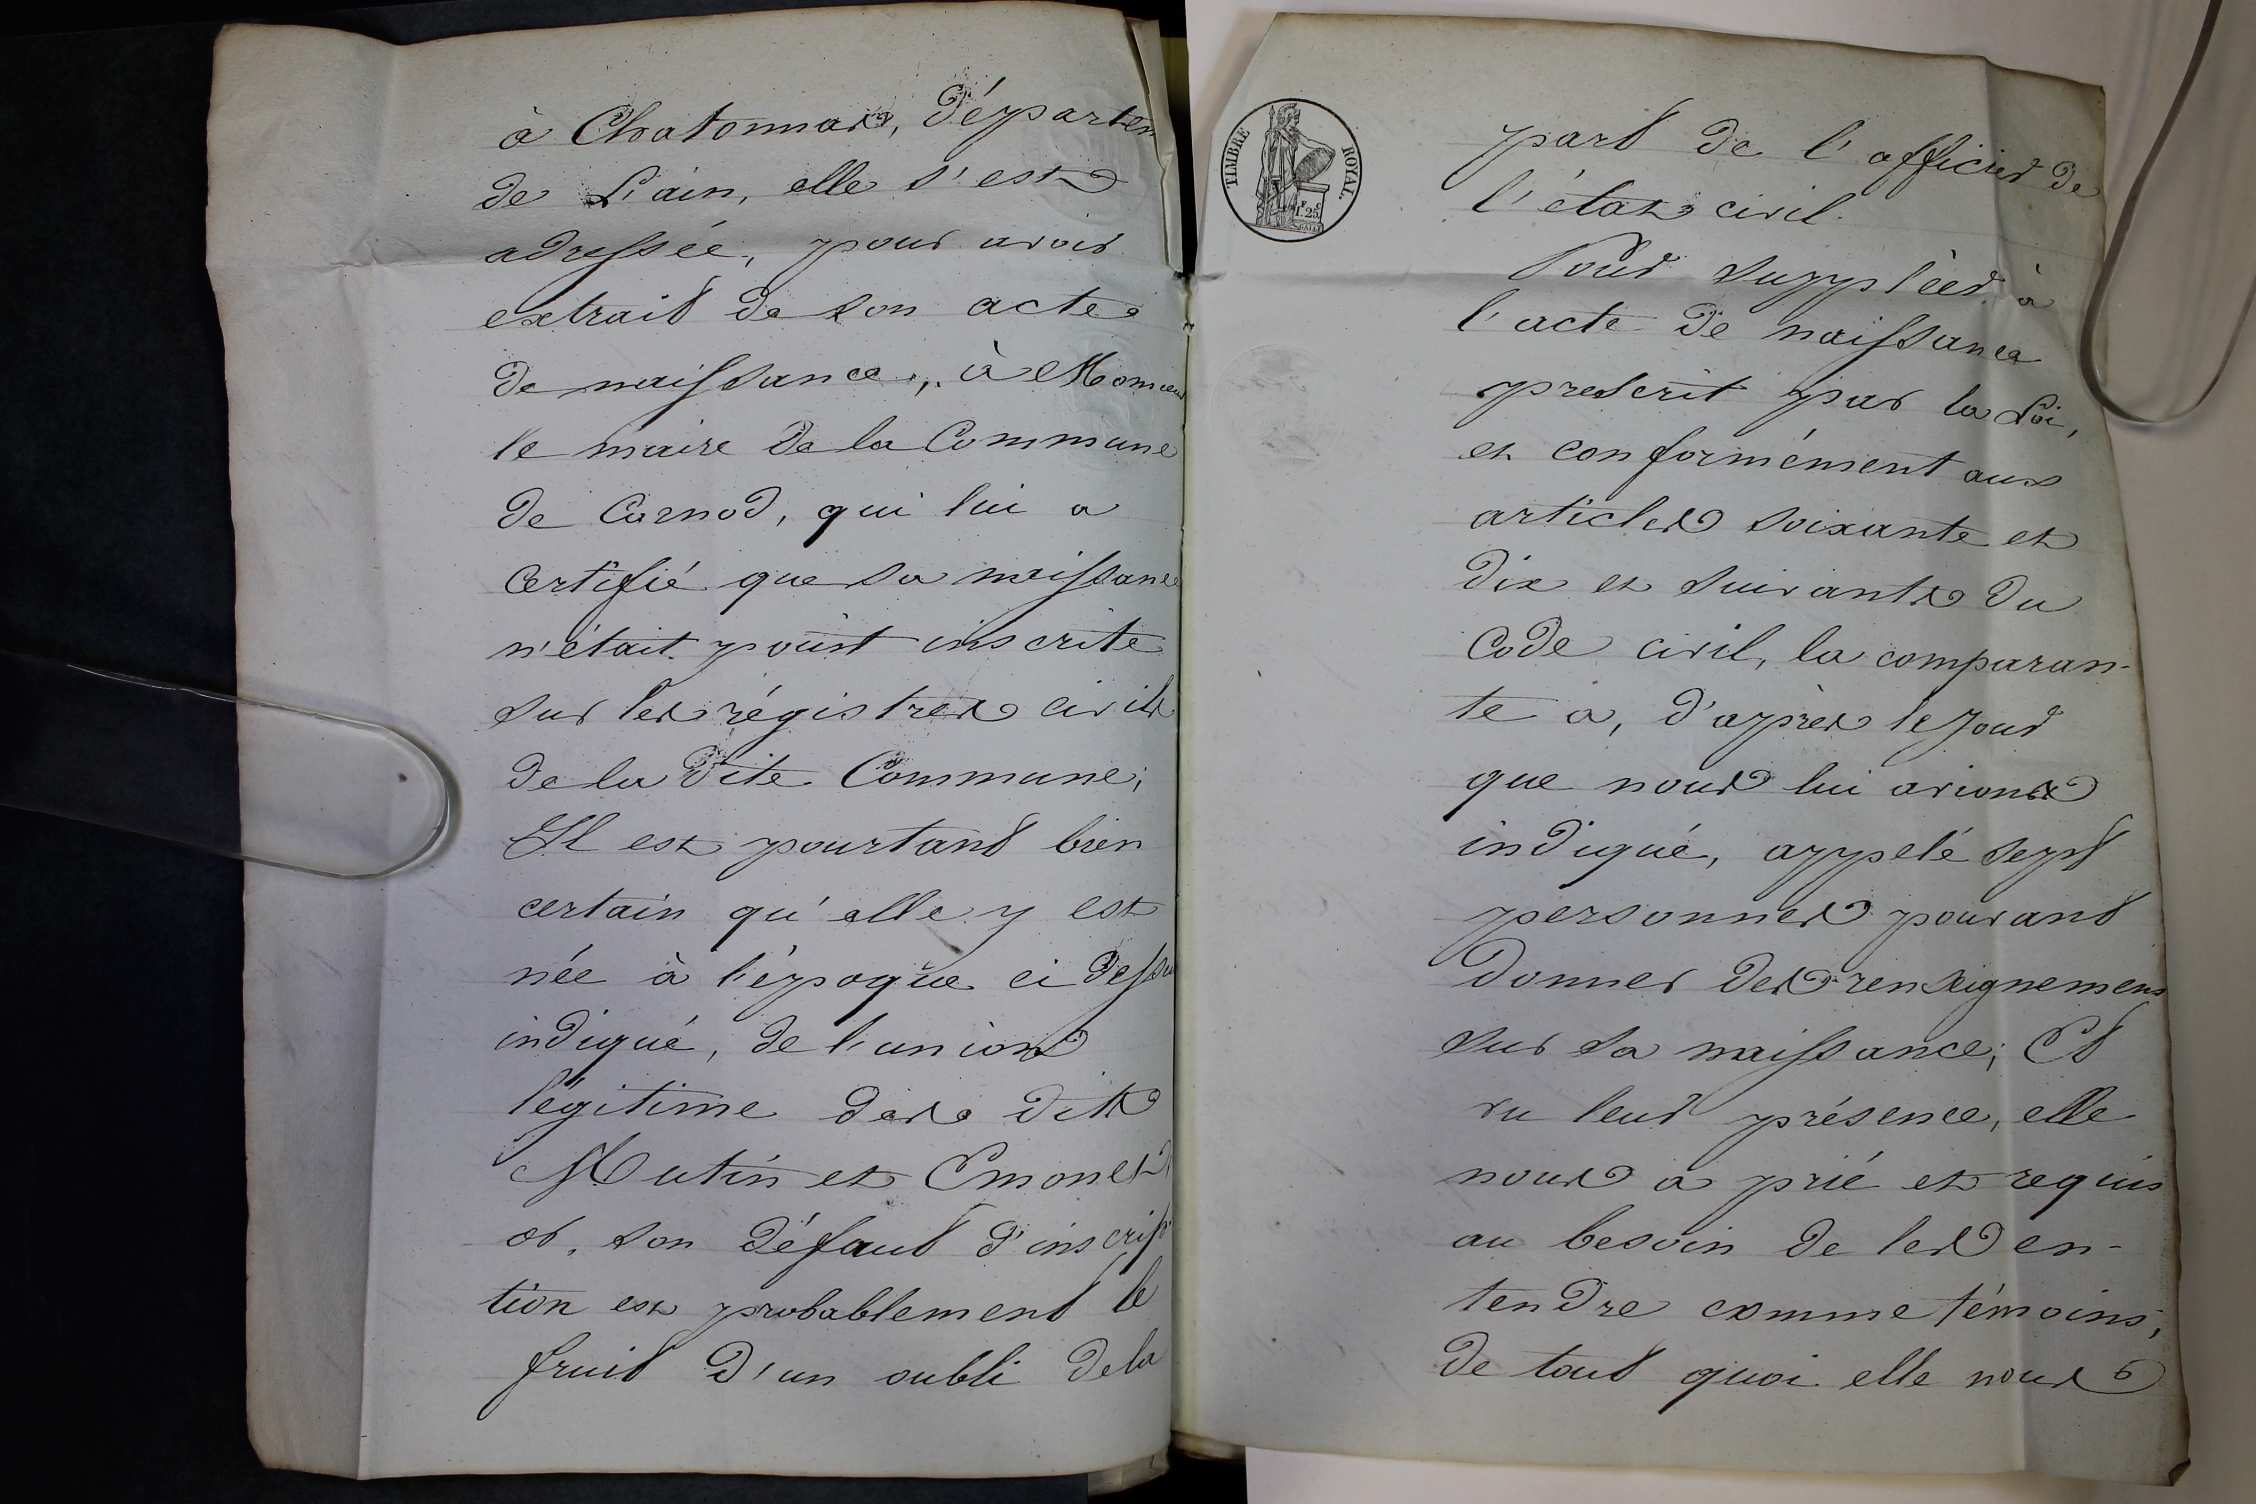 à Chatonnax, Départem
de L'ain, elle s'est
adressée, pour avoir
extrait de son acte
de naissance, à Monsieur
le maire de la Commune
de Carnod, qui lui a
certifié que sa naissance
n'était point inscrite
sur les régistres civils
de la dite Commune;
Il est pourtant bien
certain qu'elle y est
née à l'époque ci dessus
indiqué, de l'union
légitime des dits
Mutin et Emonet
or, son défaut d'inscrip
tion est probablement le
fruit d'un oubli de la
TIMBRE ROYAL.
1F.25C
part de l'officier de
l'état civil.
Pour suppléer à
l'acte de naissance
prescrit par la Loi,
et conformément aux
articles soixante et
dix et suivants du
Code civil, la comparan-
te a, d'après le jour
que nous lui avions
indiqué, appelé sept
personnes pouvant
donner des renseignemens
sur sa naissance; Et
vu leur présence, elle
nous a prié et requis
au besoin de les en-
tendre comme témoins,
de tout quoi elle nous